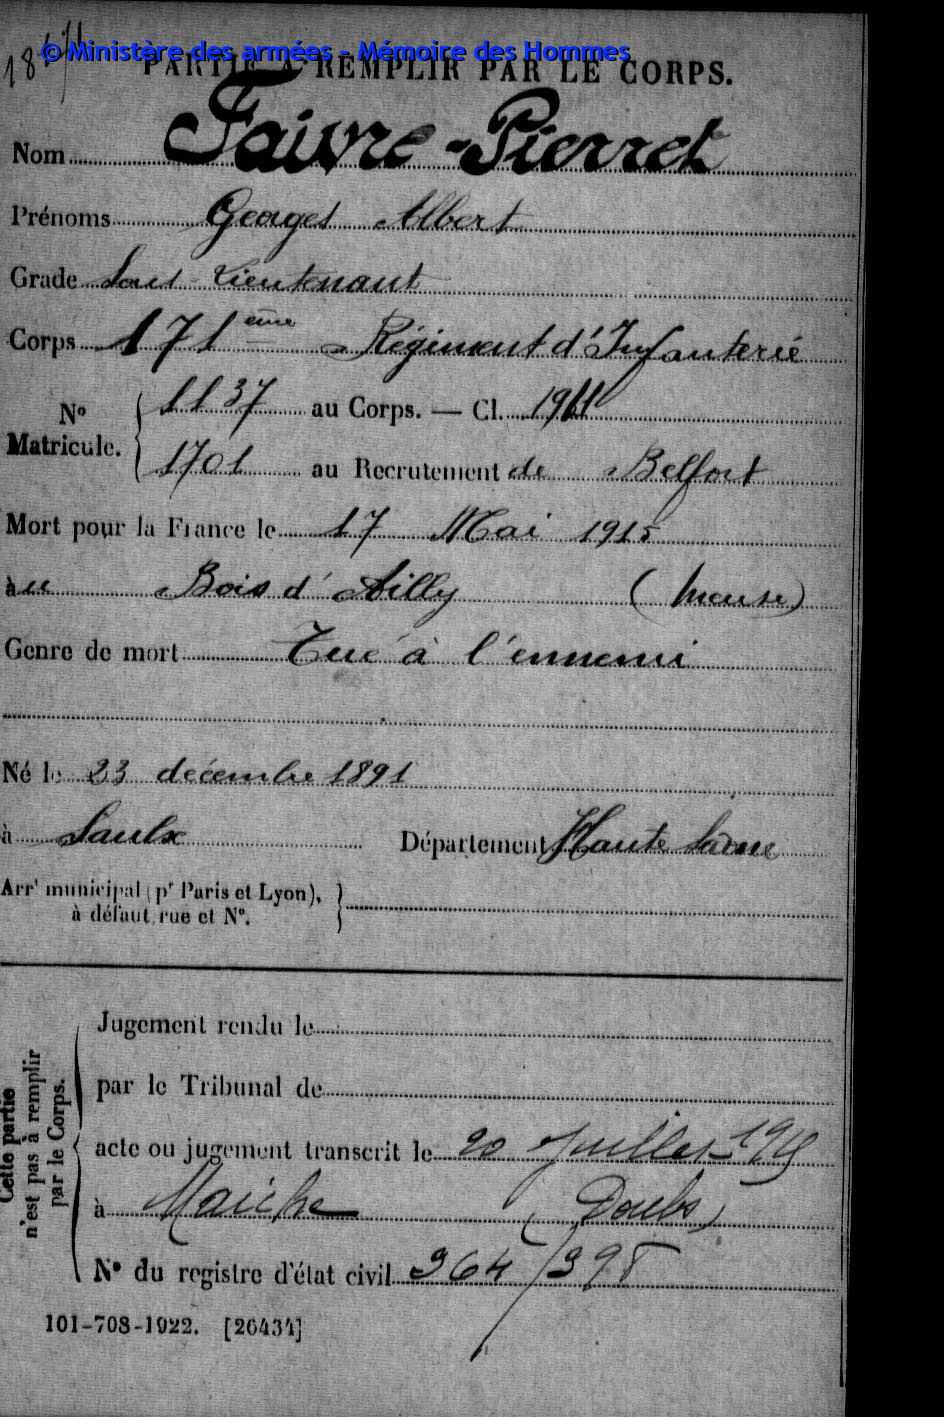 © Ministère des armées - Mémoire des Hommes
PARTIE À REMPLIR PAR LE CORPS.
Nom Faivre-Pierret
Prénoms Georges Albert
Grade Sous-Lieutenant
Corps 171ème Régiment d'Infanterie
N° Matricule. { 1137 au Corps. — Cl. 1911
1701 au Recrutement de Belfort
Mort pour la France le 17 Mai 1915
au Bois d'Ailly (Meuse)
Genre de mort Tué à l'ennemi
Né le 23 décembre 1891
à Saulx Département Haute Saône
Arrt municipal (pr Paris et Lyon), à défaut rue et N°. }
Cette partie n'est pas à remplir par le Corps.
Jugement rendu le
par le Tribunal de
acte ou jugement transcrit le 20 Juillet 1915
à Maiche (Doubs)
N° du registre d'état civil 364/398
101-708-1922. [26434]